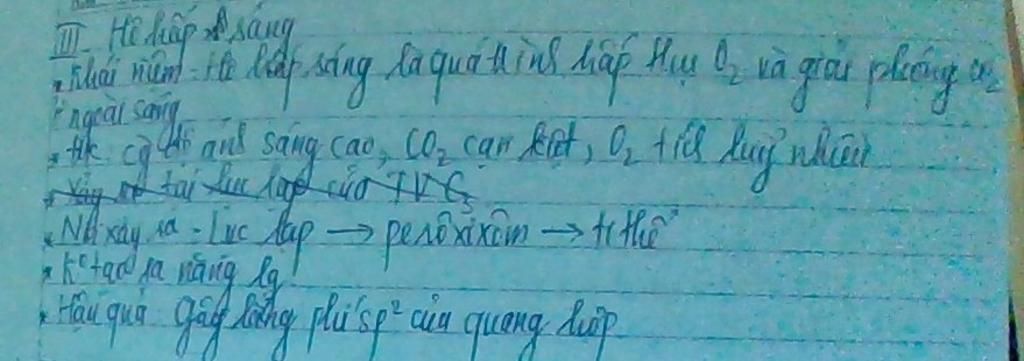 III - Hô hấp sáng
* Khái niệm: Hô hấp sáng là quá trình hấp thụ O2 và giải phóng CO2
ngoài sáng
* đk: cg độ ánh sáng cao, CO2 cạn kiệt, O2 tích luỹ nhiều
* Xảy ra tại lục lạp của TV C3
* Nơi xảy ra: Lục lạp → perôxixôm → ti thể
* K° tạo ra năng lg
* Hậu quả: Gây lãng phí sp² của quang hợp